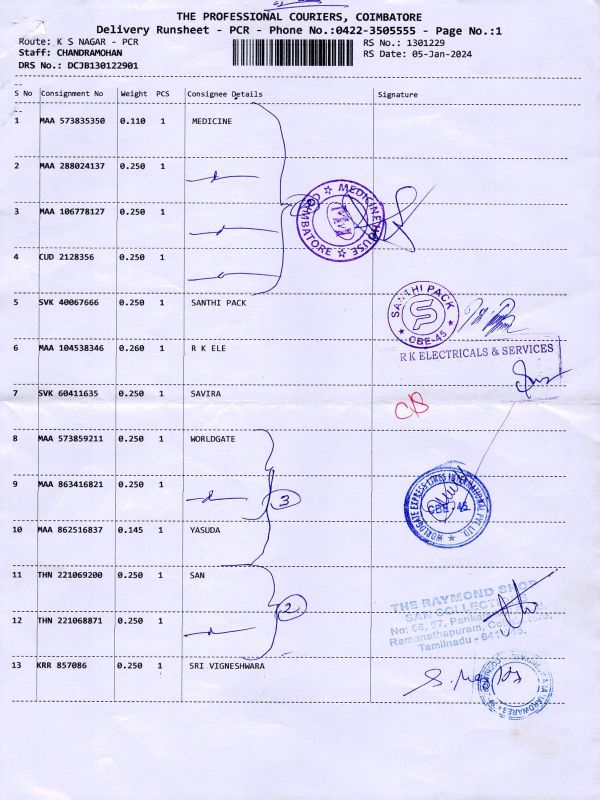 THE PROFESSIONAL COURIERS, COIMBATORE
Delivery Runsheet - PCR - Phone No.:0422-3505555 - Page No.:1
Route: K S NAGAR - PCR RS No.: 1301229
Staff: CHANDRAMOHAN RS Date: 05-Jan-2024
DRS No.: DCJB130122901
S No Consignment No Weight PCS Consignee Details Signature
1 MAA 573835350 0.110 1 MEDICINE
2 MAA 288024137 0.250 1
MEDICINE HOUSE ☆ COIMBATORE ☆
3 MAA 106778127 0.250 1
4 CUD 2128356 0.250 1
5 SVK 40067666 0.250 1 SANTHI PACK
SANTHI PACK ★ CBE-45 ★
6 MAA 104538346 0.260 1 R K ELE
R K ELECTRICALS & SERVICES
7 SVK 60411635 0.250 1 SAVIRA
CB
8 MAA 573859211 0.250 1 WORLDGATE
9 MAA 863416821 0.250 1 3
WORLDGATE EXPRESS LINES INTERNATIONAL PVT. LTD. ★
CBE-45
10 MAA 862516837 0.145 1 YASUDA
11 THN 221069200 0.250 1 SAN
2
THE RAYMOND SHOP
SAN COLLECTIONS
No: 56, 57,
12 THN 221068871 0.250 1
Ramanathapuram,
Tamilnadu -
13 KRR 857086 0.250 1 SRI VIGNESHWARA